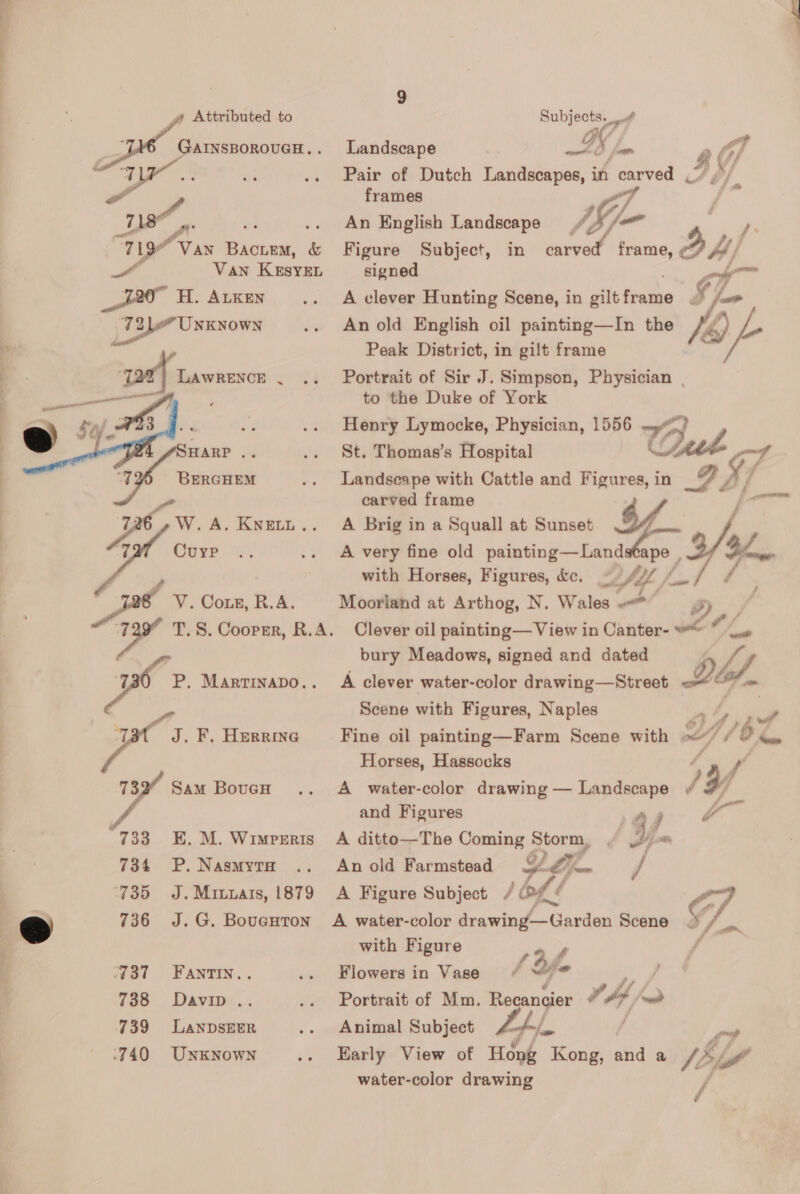 9
Attributed to Subjects.
716 GAINSBOROUGH.. Landscape
717 .. .. .. Pair of Dutch Landscapes, in carved
frames
718 .. .. .. An English Landscape
719 VAN BACLEM, & Figure Subject, in carved frame,
VAN KESYEL signed
720 H. ALKEN .. A clever Hunting Scene, in gilt frame
721 UNKNOWN .. An old English oil painting—In the
Peak District, in gilt frame
722 LAWRENCE . .. Portrait of Sir J. Simpson, Physician
to the Duke of York
723 .. .. .. Henry Lymocke, Physician, 1556
724 SHARP .. .. St. Thomas's Hospital
725 BERGHEM .. Landscape with Cattle and Figures, in
carved frame
726 W. A. KNELL.. A Brig in a Squall at Sunset
727 CUYP .. .. A very fine old painting—Landscape
with Horses, Figures, &c.
728 V. COLE, R.A. Moorland at Arthog, N. Wales
729 T. S. COOPER, R.A. Clever oil painting—View in Canter-
bury Meadows, signed and dated
730 P. MARTINADO.. A clever water-color drawing—Street
Scene with Figures, Naples
731 J. F. HERRING Fine oil painting—Farm Scene with
Horses, Hassocks
732 SAM BOUGH .. A water-color drawing — Landscape
and Figures
733 E. M. WIMPERIS A ditto—The Coming Storm,
734 P. NASMYTH .. An old Farmstead
735 J. MILLAIS, 1879 A Figure Subject
736 J. G. BOUGHTON A water-color drawing—Garden Scene
with Figure
737 FANTIN.. .. Flowers in Vase
738 DAVID .. .. Portrait of Mm. Recancier
739 LANDSEER .. Animal Subject
740 UNKNOWN .. Early View of Hong Kong, and a
water-color drawing